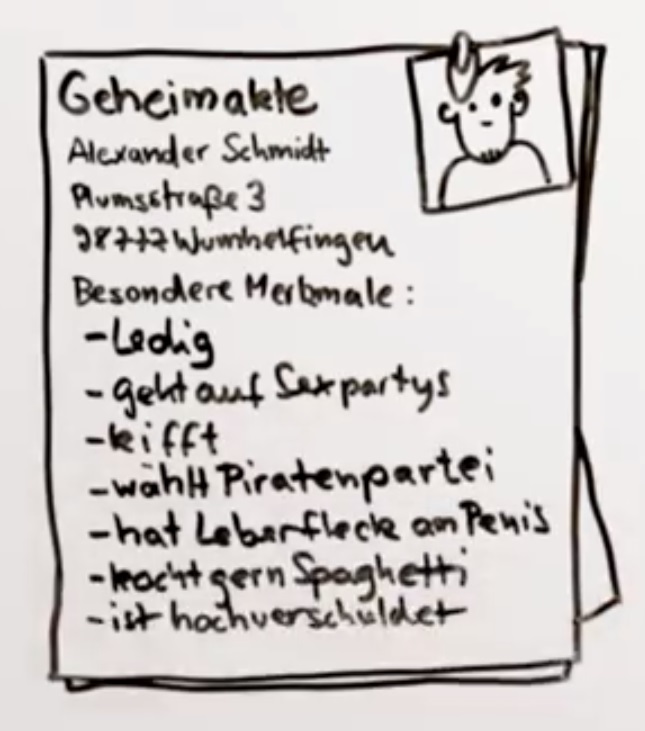 Geheimakte
Alexander Schmidt
Plumsstraße 3
Wumhelfingen
Besondere Merkmale:
-Ledig
-geht auf Sexpartys
-kifft
-wählt Piratenpartei
-hat Leberflecke am Penis
-kocht gern Spaghetti
-ist hochverschuldet